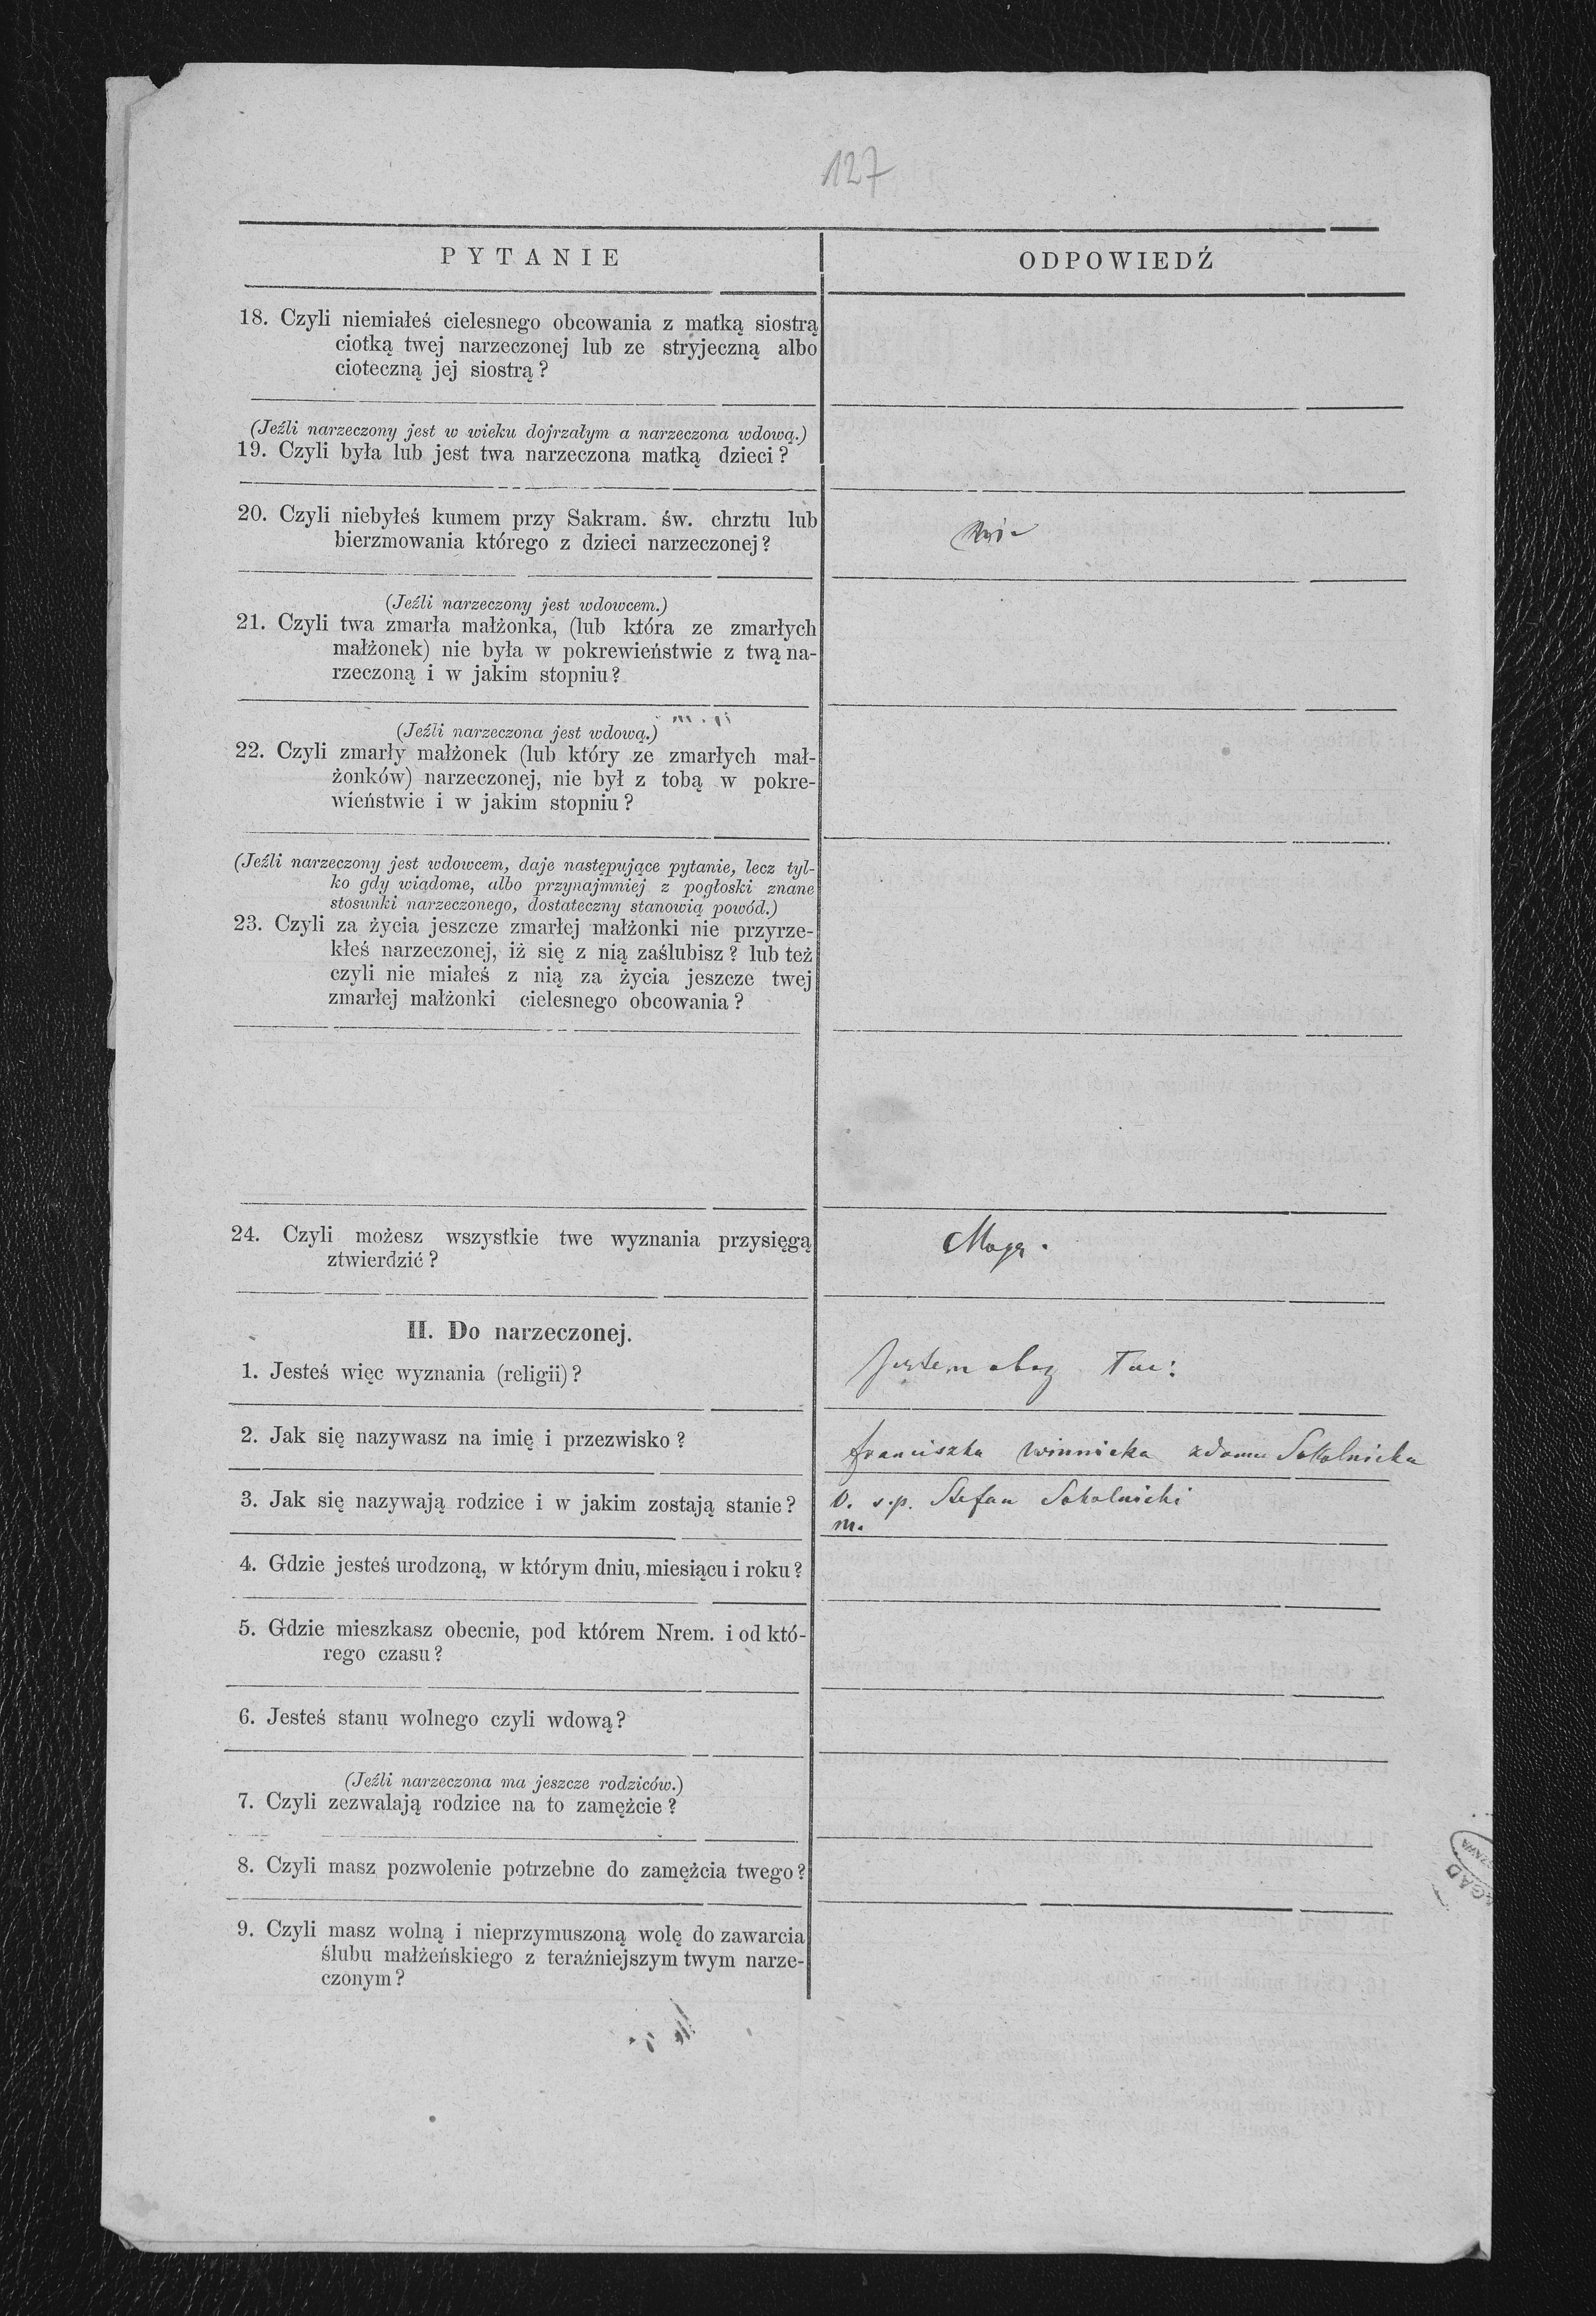 127
PYTANIE
ODPOWIEDŹ
18. Czyli niemiałeś cielesnego obcowania z matką siostrą
ciotką twej narzeczonej lub ze stryjeczną albo
cioteczną jej siostrą?
(Jeźli narzeczony jest w wieku dojrzałym a narzeczona wdową.)
19. Czyli była lub jest twa narzeczona matką dzieci?
20. Czyli niebyłeś kumem przy Sakram. św. chrztu lub
bierzmowania którego z dzieci narzeczonej?
Nie
(Jeźli narzeczony jest wdowcem.)
21. Czyli twa zmarła małżonka, (lub która ze zmarłych
małżonek) nie była w pokrewieństwie z twą na-
rzeczoną i w jakim stopniu?
(Jeźli narzeczona jest wdową.)
22. Czyli zmarły małżonek (lub który ze zmarłych mał-
żonków) narzeczonej, nie był z tobą w pokre-
wieństwie i w jakim stopniu?
(Jeźli narzeczony jest wdowcem, daje następujące pytanie, lecz tyl-
ko gdy wiadome, albo przynajmniej z pogłoski znane
stosunki narzeczonego, dostateczny stanowią powód.)
23. Czyli za życia jeszcze zmarłej małżonki nie przyrze-
kłeś narzeczonej, iż się z nią zaślubisz? lub też
czyli nie miałeś z nią za życia jeszcze twej
zmarłej małżonki cielesnego obcowania?
24. Czyli możesz wszystkie twe wyznania przysięgą
ztwierdzić?
Mogę.
II. Do narzeczonej.
1. Jesteś więc wyznania (religii)?
Jestem obrz łac:
2. Jak się nazywasz na imię i przezwisko?
Franciszka Winnicka z domu Sokolnicka
3. Jak się nazywają rodzice i w jakim zostają stanie?
O. s.p. Stefan Sokolnicki
m.
4. Gdzie jesteś urodzoną, w którym dniu, miesiącu i roku?
5. Gdzie mieszkasz obecnie, pod którem Nrem. i od któ-
rego czasu?
6. Jesteś stanu wolnego czyli wdową?
(Jeźli narzeczona ma jeszcze rodziców.)
7. Czyli zezwalają rodzice na to zamężcie?
8. Czyli masz pozwolenie potrzebne do zamężcia twego?
9. Czyli masz wolną i nieprzymuszoną wolę do zawarcia
ślubu małżeńskiego z teraźniejszym twym narze-
czonym?